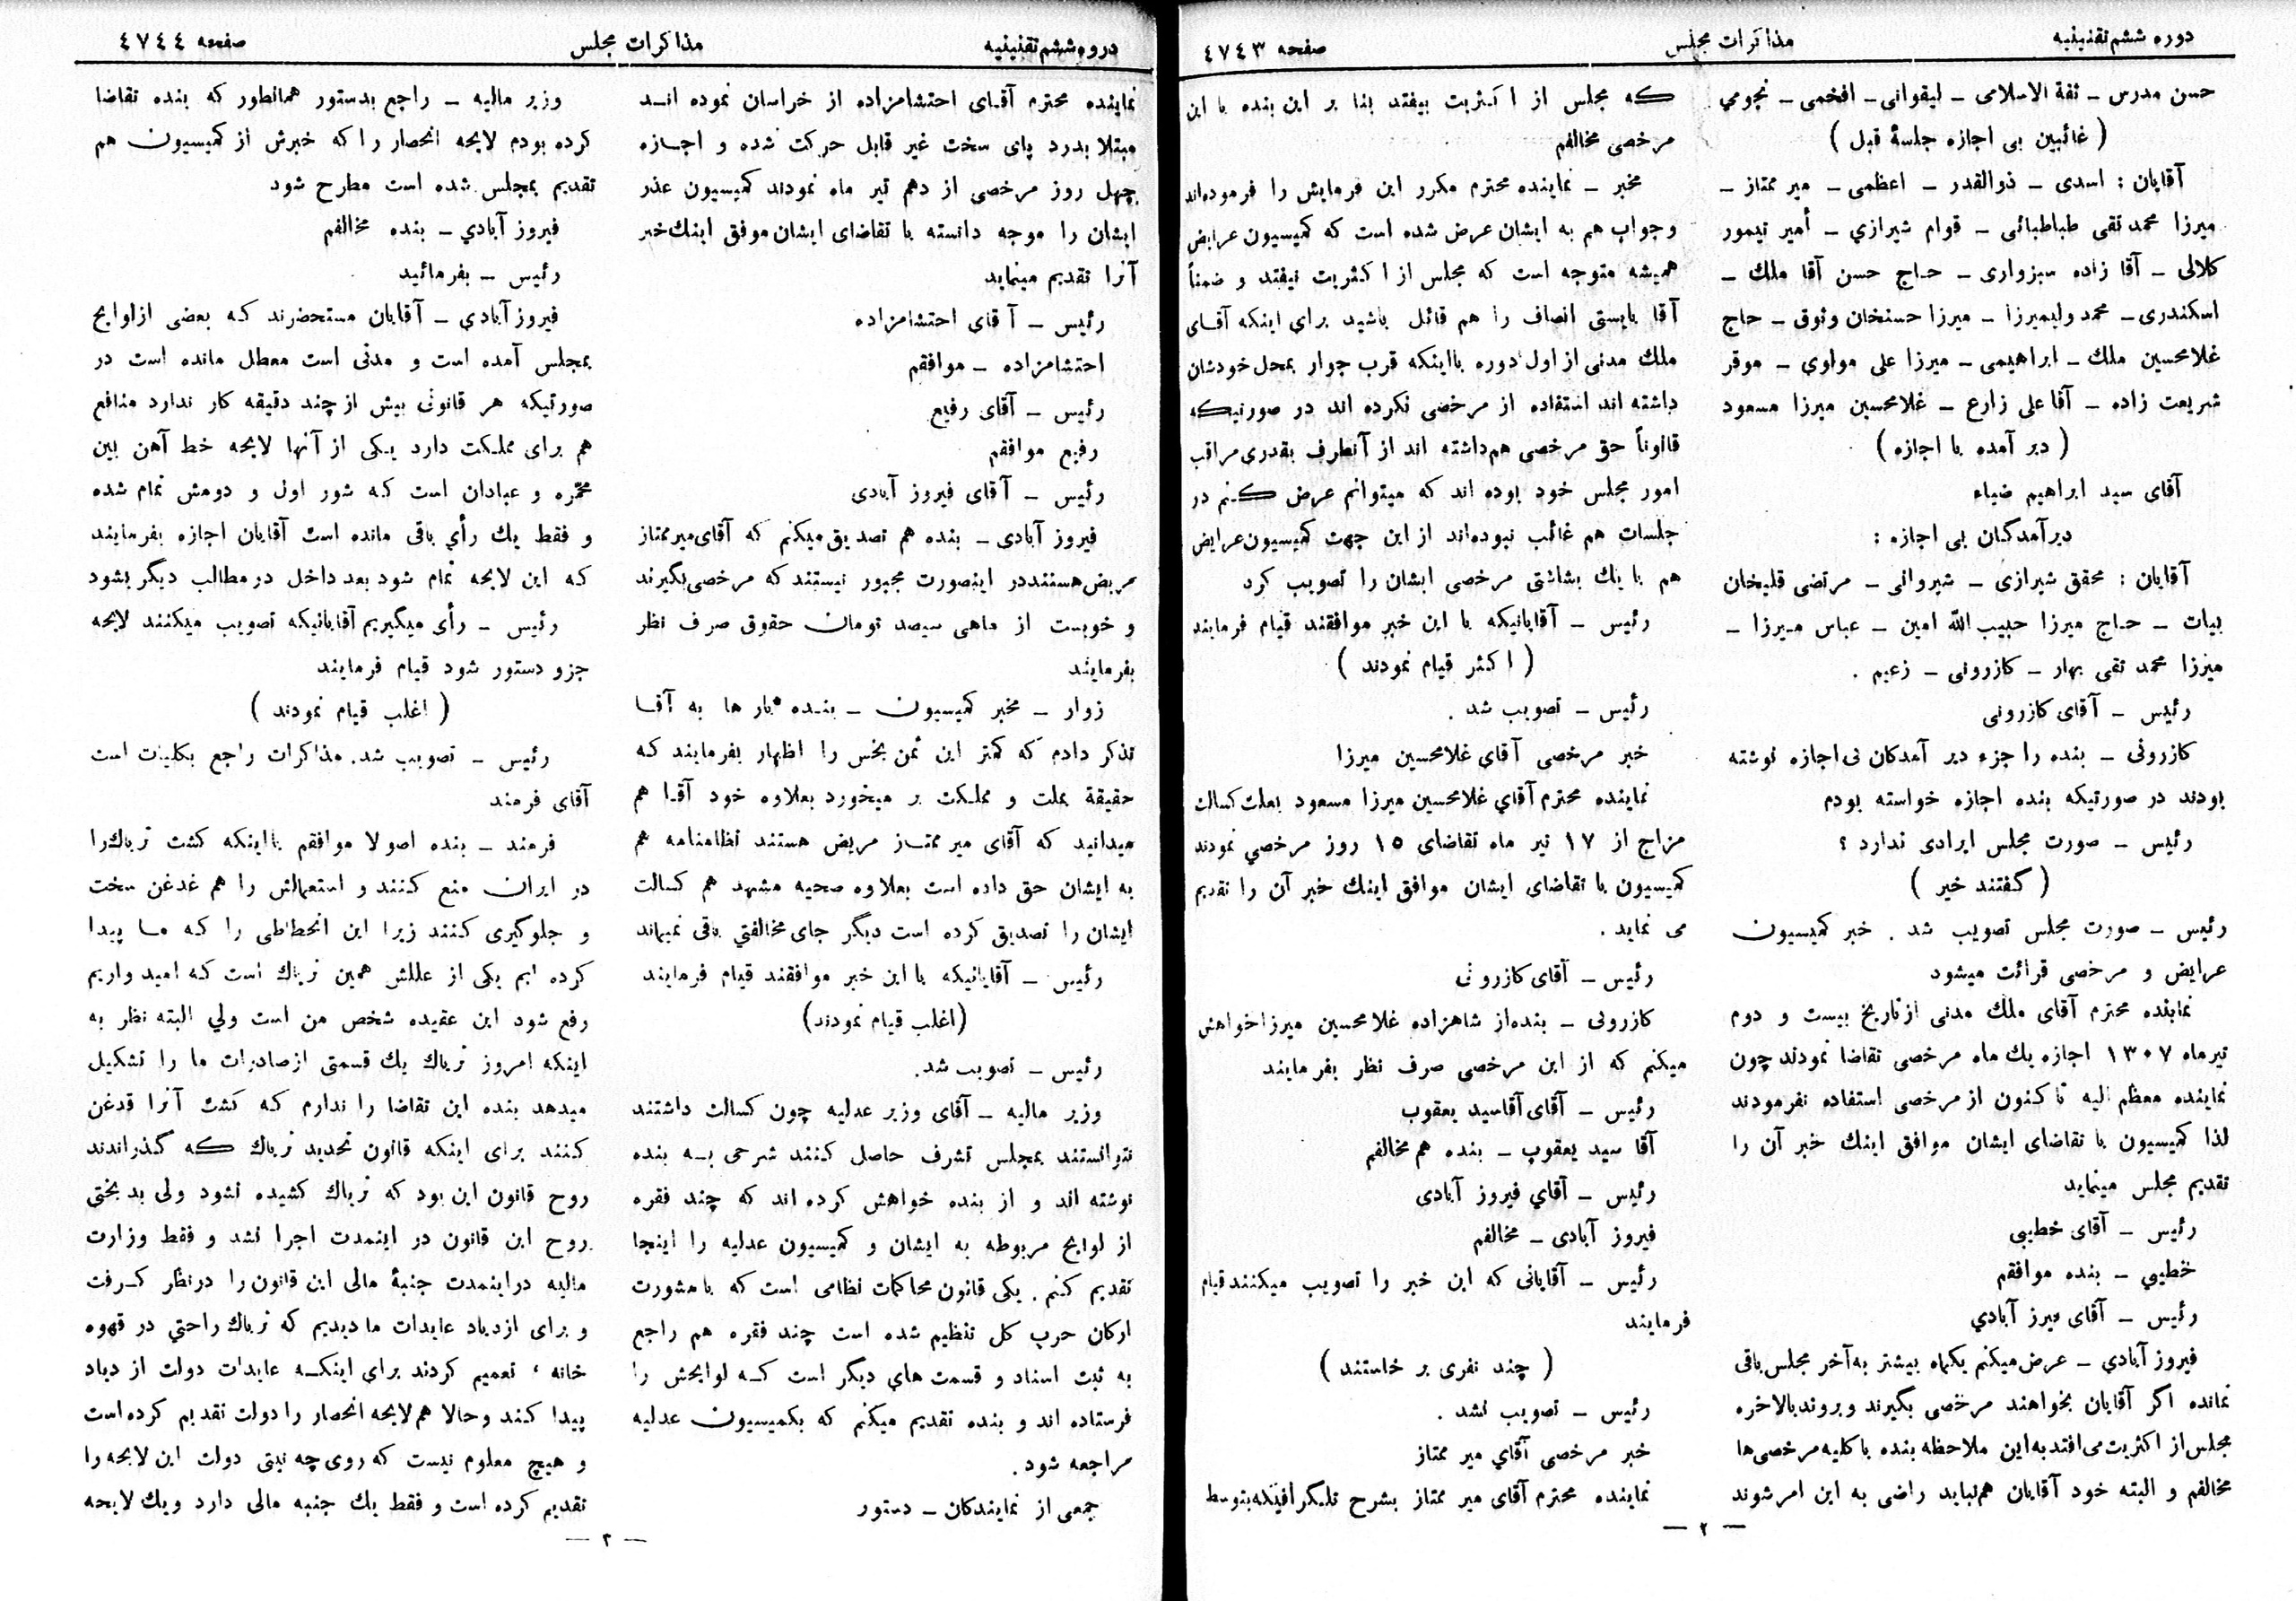 دوره ششم تقنینیه
مذاکرات مجلس
صفحه ٤٧٤٣
حسن مدرس ـ ثقة الاسلامی ـ لیقوانی ـ افخمی ـ نجومي
( غائبین بی اجازه جلسهٔ قبل )
آقایان : اسدی ـ ذوالقدر ـ اعظمی ـ میر ممتاز ـ
میرزا محمد تقی طباطبائی ـ قوام شیرازي ـ أمیر تیمور
کلالی ـ آقا زاده سبزواری ـ حاج حسن آقا ملك ـ
اسکندری ـ محمد ولیمیرزا ـ میرزا حسنخان وثوق ـ حاج
غلامحسین ملك ـ ابراهیمی ـ میرزا علی مولوي ـ موقر
شریعت زاده ـ آقا علی زارع ـ غلامحسین میرزا مسعود
( دیر آمده با اجازه )
آقای سید ابراهیم ضیاء
دیرآمدگان بی اجازه :
آقایان : محقق شیرازی ـ شیروانی ـ مرتضی قلیخان
بیات ـ حاج میرزا حبیب الله امین ـ عباس میرزا ـ
میرزا محمد تقی بهار ـ کازرونی ـ زعیم .
رئیس ـ آقای کازرونی
کازرونی ـ بنده را جزء دیر آمدگان بی اجازه نوشته
بودند در صورتیکه بنده اجازه خواسته بودم
رئیس ـ صورت مجلس ایرادی ندارد ؟
( گفتند خیر )
رئیس ـ صورت مجلس تصویب شد . خبر کمیسیون
عرایض و مرخصی قرائت میشود
نماینده محترم آقای ملك مدنی از تاریخ بیست و دوم
تیرماه ١٣٠٧ اجازه یك ماه مرخصی تقاضا نمودند چون
نماینده معظم الیه تا کنون از مرخصی استفاده نفرمودند
لذا کمیسیون با تقاضای ایشان موافق اینك خبر آن را
تقدیم مجلس مینماید
رئیس ـ آقای خطیبی
خطیبي ـ بنده موافقم
رئیس ـ آقای فیرز آبادي
فیروز آبادي ـ عرض میکنم یکماه بیشتر به آخر مجلس باقی
نمانده اگر آقایان بخواهند مرخصی بگیرند و بروند بالاخره
مجلس از اکثریت می افتد به این ملاحظه بنده با کلیه مرخصی ها
مخالفم و البته خود آقایان هم نباید راضی به این امر شوند
که مجلس از اکثریت بیفتد بنا بر این بنده با این
مرخصی مخالفم
مخبر ـ نماینده محترم مکرر این فرمایش را فرموده‌اند
و جواب هم به ایشان عرض شده است که کمیسیون عرایض
همیشه متوجه است که مجلس از اکثریت نیفتد و ضمناً
آقا بایستی انصاف را هم قائل باشید برای اینکه آقای
ملك مدنی از اول دوره با اینکه قرب جوار بمحل خودشان
داشته اند استفاده از مرخصی نکرده اند در صورتیکه
قانوناً حق مرخصی هم داشته اند از آنطرف بقدری مراقب
امور مجلس خود بوده اند که میتوانم عرض کنم در
جلسات هم غائب نبوده‌اند از این جهت کمیسیون عرایض
هم با یك بشاشتی مرخصی ایشان را تصویب کرد
رئیس ـ آقایانیکه با این خبر موافقند قیام فرمایند
( اکثر قیام نمودند )
رئیس ـ تصویب شد .
خبر مرخصی آقای غلامحسین میرزا
نماینده محترم آقاي غلامحسین میرزا مسعود بعلت کسالت
مزاج از ١٧ تیر ماه تقاضای ١٥ روز مرخصي نمودند
کمیسیون با تقاضای ایشان موافق اینك خبر آن را تقدیم
می نماید .
رئیس ـ آقای کازرونی
کازرونی ـ بنده از شاهزاده غلامحسین میرزا خواهش
میکنم که از این مرخصی صرف نظر بفرمایند
رئیس ـ آقای آقاسید یعقوب
آقا سید یعقوب ـ بنده هم مخالفم
رئیس ـ آقاي فیروز آبادی
فیروز آبادی ـ مخالفم
رئیس ـ آقایانی که این خبر را تصویب میکنند قیام
فرمایند
( چند نفری بر خاستند )
رئیس ـ تصویب نشد .
خبر مرخصی آقاي میر ممتاز
نماینده محترم آقای میر ممتاز بشرح تلیگرافیکه بتوسط
ـ ٢ ـ
دروه ششم تقنینیه
مذاکرات مجلس
صفحه ٤٧٤٤
نماینده محترم آقای احتشامزاده از خراسان نموده اند
مبتلا بدرد پای سخت غیر قابل حرکت شده و اجازه
چهل روز مرخصی از دهم تیر ماه نمودند کمیسیون عذر
ایشان را موجه دانسته با تقاضای ایشان موفق اینك خبر
آنرا تقدیم مینماید
رئیس ـ آقای احتشامزاده
احتشامزاده ـ موافقم
رئیس ـ آقای رفیع
رفیع موافقم
رئیس ـ آقای فیروز آبادی
فیروز آبادی ـ بنده هم تصدیق میکنم که آقای میر ممتاز
مریض هستند در اینصورت مجبور نیستند که مرخصی بگیرند
و خوبست از ماهی سیصد تومان حقوق صرف نظر
بفرمایند
زوار ـ مخبر کمیسیون ـ بنده بار ها به آقا
تذکر دادم که کمتر این ثمن بخس را اظهار بفرمایند که
حقیقة بملت و مملکت بر میخورد بعلاوه خود آقا هم
میدانید که آقای میر ممتاز مریض هستند نظامنامه هم
به ایشان حق داده است بعلاوه صحیه مشهد هم کسالت
ایشان را تصدیق کرده است دیگر جای مخالفتي باقی نمیماند
رئیس ـ آقایانیکه با این خبر موافقند قیام فرمایند
(اغلب قیام نمودند)
رئیس ـ تصویب شد.
وزیر مالیه ـ آقای وزیر عدلیه چون کسالت داشتند
نتوانستند بمجلس تشرف حاصل کنند شرحی به بنده
نوشته اند و از بنده خواهش کرده اند که چند فقره
از لوایح مربوطه به ایشان و کمیسیون عدلیه را اینجا
تقدیم کنم . یکی قانون محاکمات نظامی است که با مشورت
ارکان حرب کل تنظیم شده است چند فقره هم راجع
به ثبت اسناد و قسمت هاي دیگر است که لوایحش را
فرستاده اند و بنده تقدیم میکنم که بکمیسیون عدلیه
مراجعه شود.
جمعی از نمایندکان ـ دستور
وزیر مالیه ـ راجع بدستور همانطور که بنده تقاضا
کرده بودم لایحه انحصار را که خبرش از کمیسیون هم
تقدیم بمجلس شده است مطرح شود
فیروز آبادي ـ بنده مخالفم
رئیس ـ بفرمائید
فیروز آبادي ـ آقایان مستحضرند که بعضی از لوایح
بمجلس آمده است و مدتی است معطل مانده است در
صورتیکه هر قانونی بیش از چند دقیقه کار ندارد منافع
هم برای مملکت دارد یکی از آنها لایحه خط آهن بین
محمره و عبادان است که شور اول و دومش تمام شده
و فقط یك رأي باقی مانده است آقایان اجازه بفرمایند
که این لایحه تمام شود بعد داخل در مطالب دیگر بشود
رئیس ـ رأی میگیریم آقایانیکه تصویب میکنند لایحه
جزو دستور شود قیام فرمایند
( اغلب قیام نمودند )
رئیس ـ تصویب شد. مذاکرات راجع بکلیات است
آقای فرمند
فرمند ـ بنده اصولا موافقم با اینکه کشت تریاك را
در ایران منع کنند و استعمالش را هم غدغن سخت
و جلوگیری کنند زیرا این انحطاطی را که ما پیدا
کرده ایم یکی از عللش همین تریاك است که امید واریم
رفع شود این عقیده شخص من است ولي البته نظر به
اینکه امروز تریاك یك قسمتی از صادرات ما را تشکیل
میدهد بنده این تقاضا را ندارم که کشت آنرا قدغن
کنند برای اینکه قانون تحدید تریاك که گذراندند
روح قانون این بود که تریاك کشیده نشود ولی بدبختي
روح این قانون در اینمدت اجرا نشد و فقط وزارت
مالیه در اینمدت جنبهٔ مالی این قانون را در نظر گرفت
و برای ازدیاد عایدات ما دیدیم که تریاك راحتي در قهوه
خانه ، تعمیم کردند براي اینکه عایدات دولت ازدیاد
پیدا کند و حالا هم لایحه انحصار را دولت تقدیم کرده است
و هیچ معلوم نیست که روی چه نیتی دولت این لایحه را
تقدیم کرده است و فقط یك جنبه مالی دارد و یك لایحه
ـ ٢ ـ